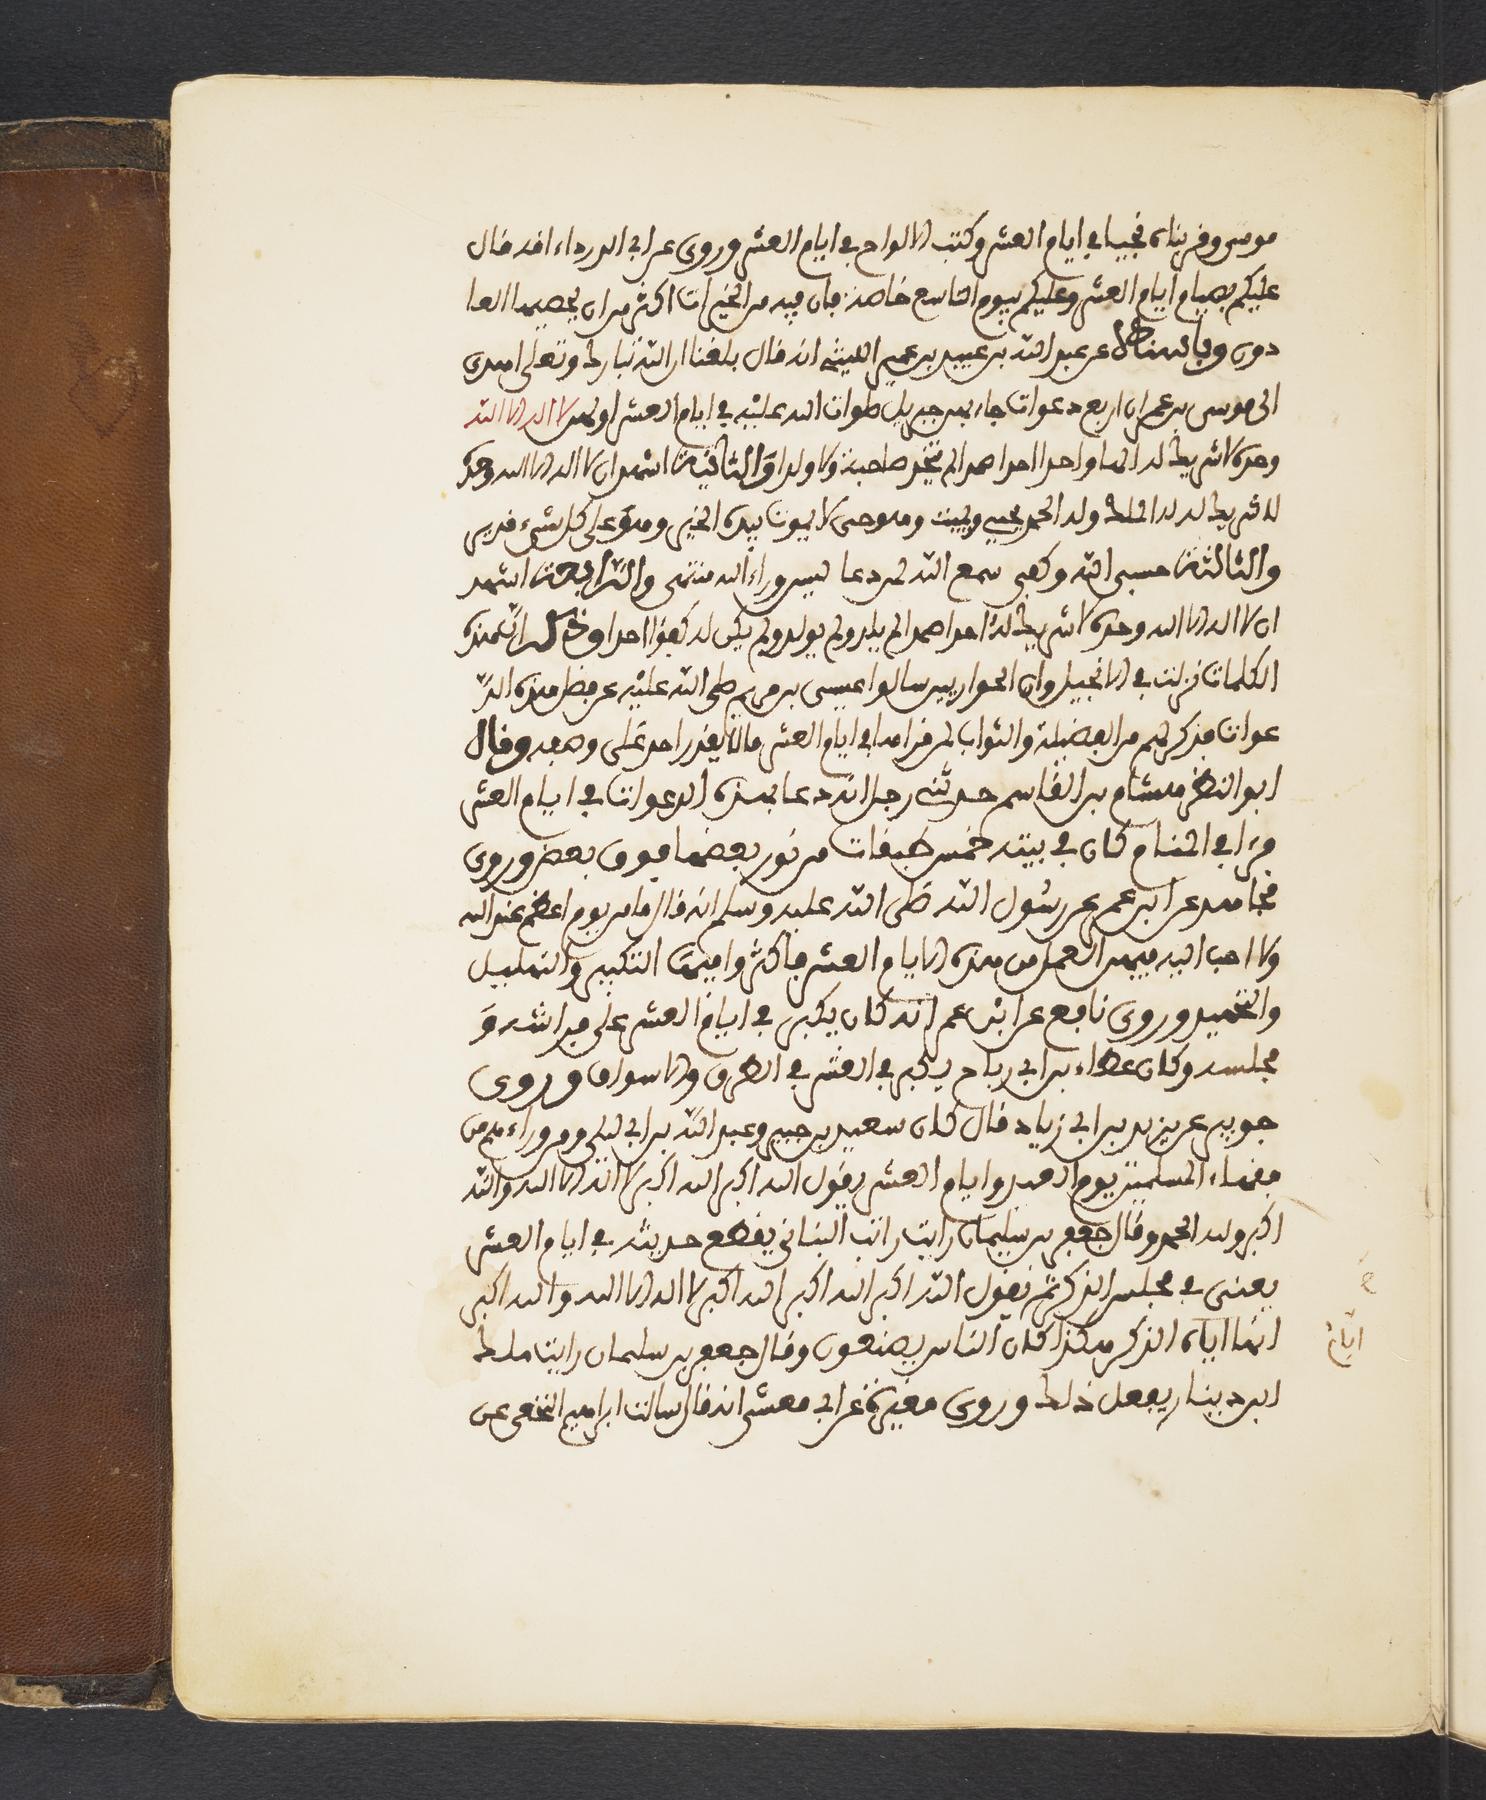 موسى وقربناه نجيا في ايام العشر وكتب الالواح في ايام العشر وروى عن ابي الدرداء انه قال
عليكم بصيام ايام العشر وعليكم بيوم التاسع خاصة فان فيه من الخيرات اكثر من ان يحصيها العا
دون وباسناده عن عبد الله بن عبيد بن عمير الليثي انه قال بلغنا ان الله تبارك وتعلى اهدى
الى موسى بن عمران اربع دعوات جاء بهن جبريل صلوات الله عليه في ايام العشر اولهن لا اله الا الله
وحده لا شريك له الها واحدا احدا صمدا لم يتخذ صاحبة ولا ولدا والثانية اشهد ان لا اله الا الله وحده
لا شريك له له الملك وله الحمد يحيي ويميت وهو حي لا يموت بيده الخير وهو على كل شيء قدير
والثالثة حسبي الله وكفى سمع الله لمن دعا ليس وراء الله منتهى والرابعة اشهد
ان لا اله الا الله وحده لا شريك له احدا صمدا لم يلد ولم يولد ولم يكن له كفؤا احد وذكر ان هذه
الكلمات نزلت في الانجيل وان الحواريين سالوا عيسى بن مريم صلى الله عليه عن فضل هذه الد
عوات فذكر لهم من الفضيلة والثواب لمن قراها في ايام العشر ما لا يقدر احد على وصفه وقال
ابو النضر هشام بن القاسم حدثني رجل انه دعا بهذه الدعوات في ايام العشر
فرءا في المنام كان في بيته خمس طبقات من نور بعضها فوق بعض وروى
مجاهد عن ابن عمر عن رسول الله صلى الله عليه وسلم انه قال ما من يوم اعظم عند الله
ولا احب اليه فيهن العمل من هذه الايام العشر فاكثروا فيها التكبير والتهليل
والتحميد وروى نافع عن ابن عمر انه كان يكبر في ايام العشر على فراشه و
مجلسه وكان عطاء بن ابي رباح يكبر في العشر في الطرق والاسواق وروى
جويبر عن يزيد بن ابي زياد قال كان سعيد بن جبير وعبد الله بن ابي ليلى ومن وراءهم من
فقهاء المسلمين يوم العيد وايام العشر يقول الله اكبر الله اكبر لا اله الا الله والله
اكبر ولله الحمد وقال جعفر بن سليمان رايت ثابت البناني يقطع حديثه في ايام العشر
يعني في مجلس الذكر ثم يقول الله اكبر الله اكبر الله اكبر لا اله الا الله والله اكبر
انها ايام الذكر هكذا كان الناس يصنعون وقال جعفر بن سلمان رايت ملك
ابن دينار يفعل ذلك وروى مغيرة عن ابي معشر انه قال سالت ابراهيم النخعي عن
ايام